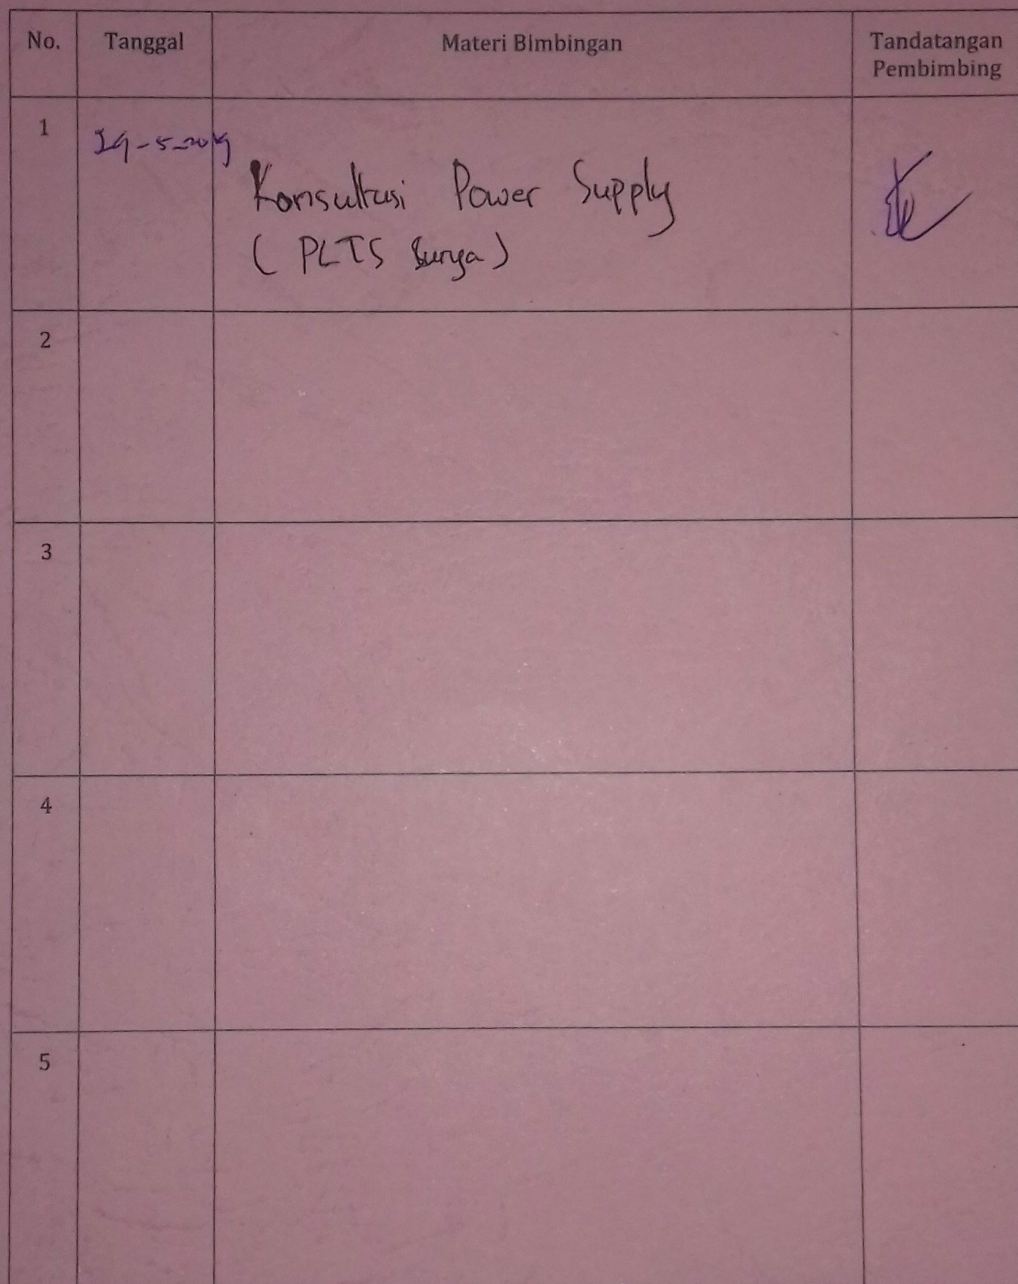 No. Tanggal Materi Bimbingan Tandatangan
Pembimbing
1
Konsultasi Power Supply
( PLTS Surya )
2
3
4
5